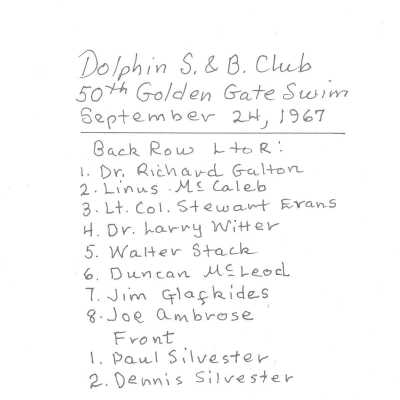 Dolphin S. & B. Club
50th Golden Gate Swim
September 24, 1967
Back Row L to R:
1. Dr. Richard Galton
2. Linus McCaleb
3. Lt. Col. Stewart Evans
4. Dr. Larry Witter
5. Walter Stack
6. Duncan McLeod
7. Jim
8. Joe Ambrose
Front
1. Paul Silvester
2. Dennis Silvester